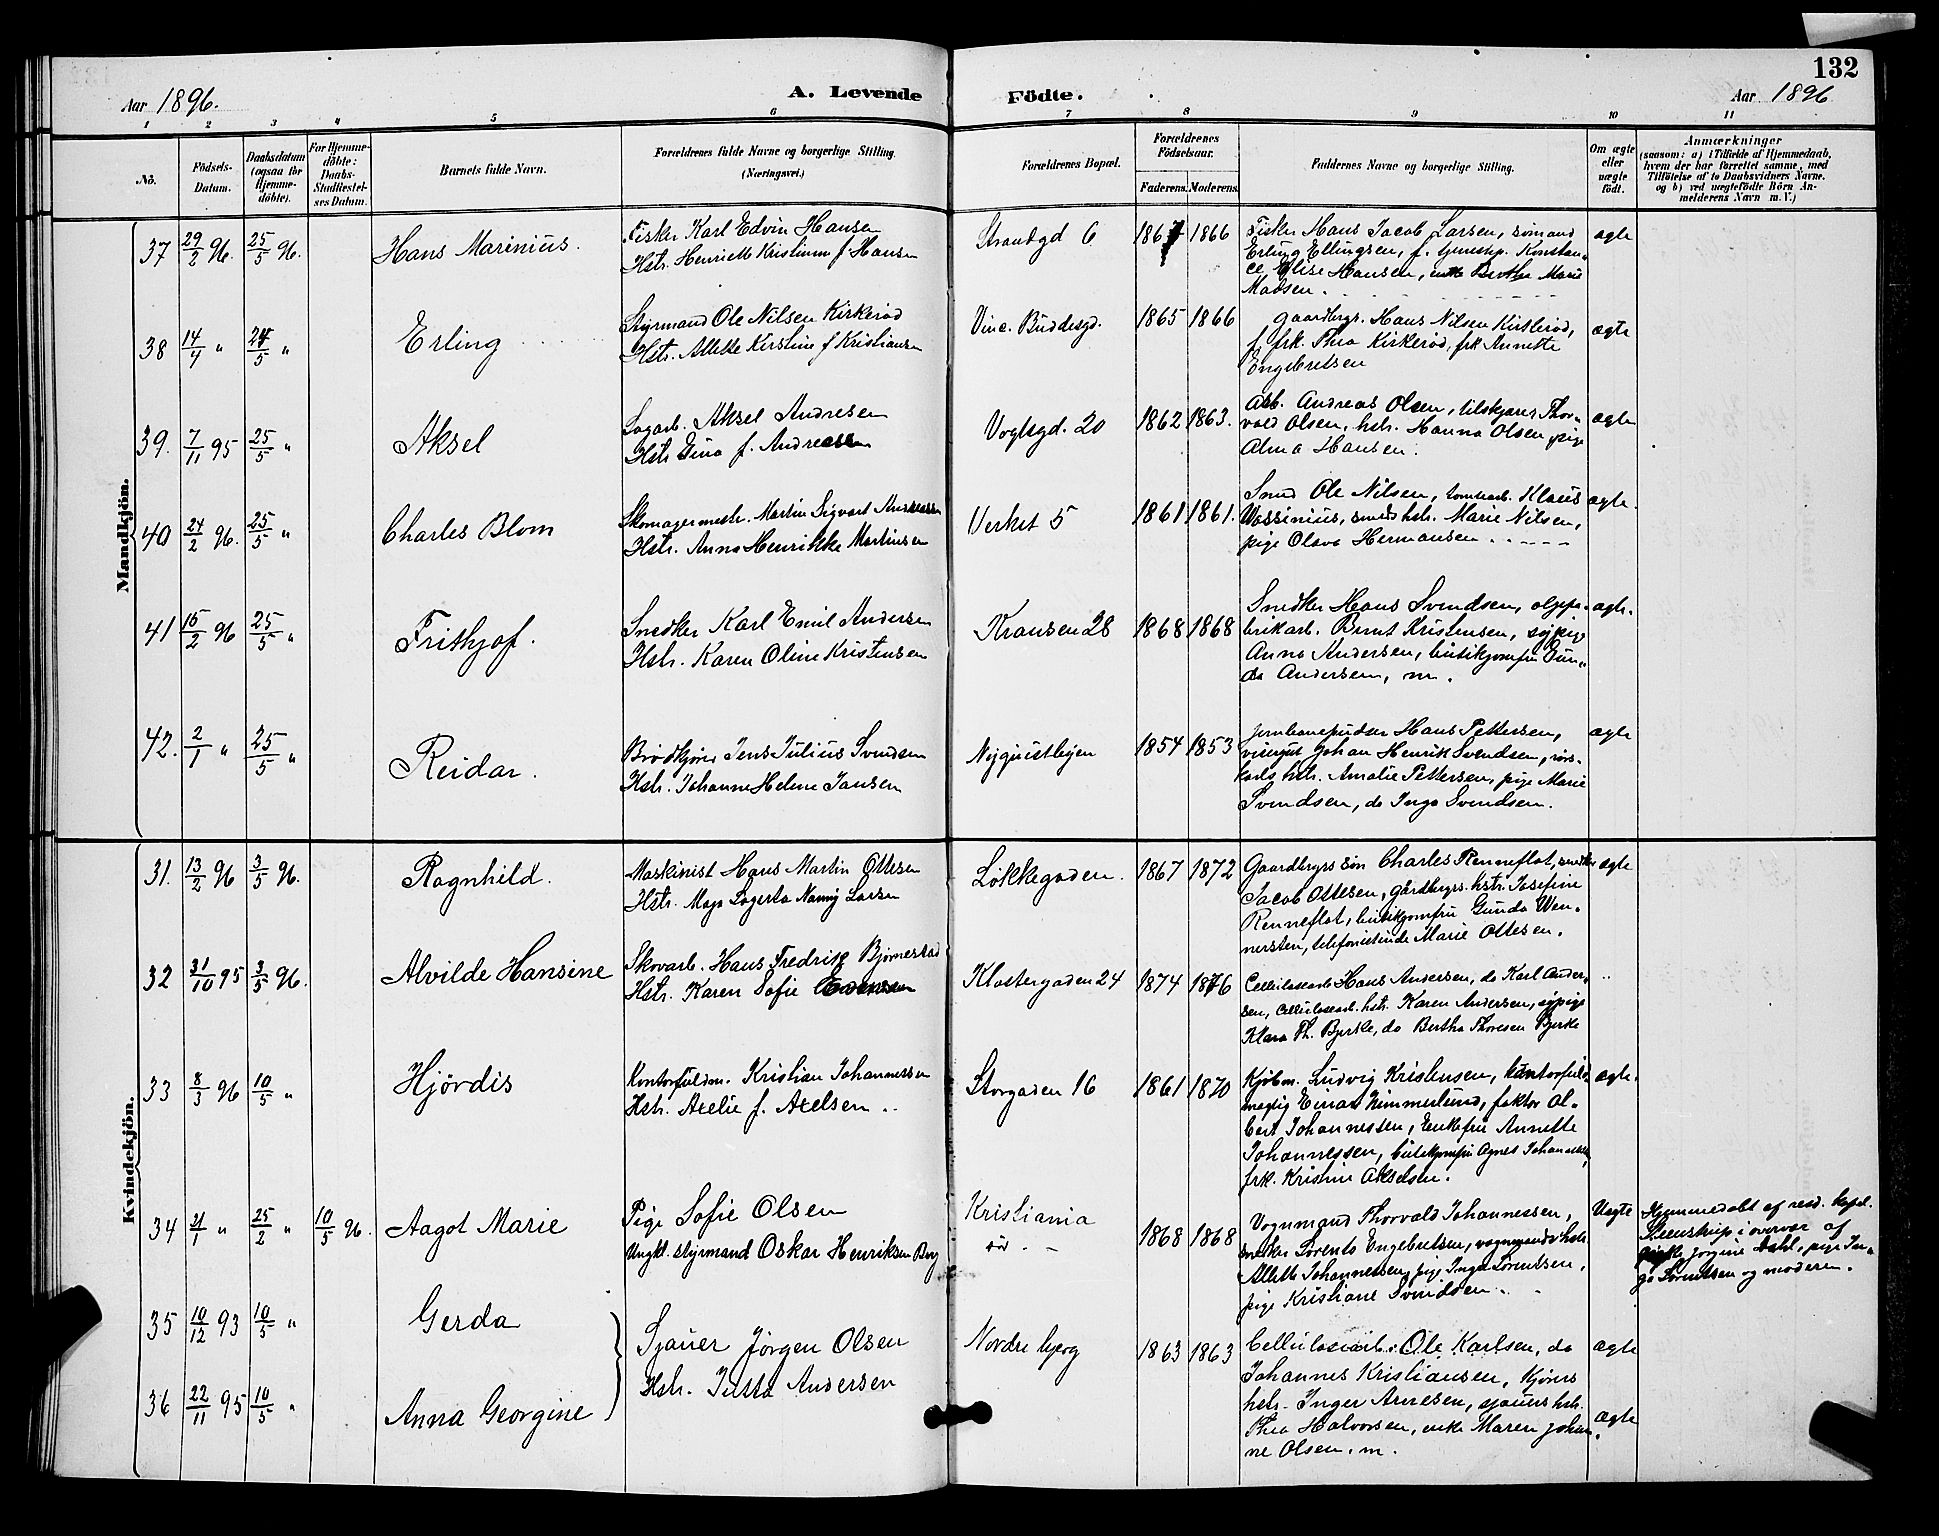 132
Aar 1896.
A. Levende
Födte.
Aar 1896
1 2 3 4 5 6 7 8 9 10 11
No.
Födsels-
Datum.
Daabsdatum
(ogsaa for
Hjemme-
döbte).
For Hjemme-
döbte:
Daabs-
Stadfæstel-
ses Datum.
Barnets fulde Navn.
Forældrenes fulde Navne og borgerlige Stilling.
(Næringsvei.)
Forældrenes Bopæl.
Forældrenes
Födselsaar.
Faderens. Moderens.
Faddernes Navne og borgerlige Stilling.
Om ægte
eller
uægte
født.
Anmærkninger
(saasom: a) i Tilfælde af Hjemmedaab,
hvem der har forrettet samme, med
Tilföielse af to Daabsvidners Navne.
og b) ved uægtefödte Börn An-
melderens Navn m. V.)
Mandkjön.
37 29/2 96. 25/5 96. Hans Marinius.
Fisker Karl Edvin Hansen
Hstr. Henriette Kristiane f Hansen
Strandgd 6 1867 1866
Fisker Hans Jacob Larsen, sømand
Erling Ellingsen, f. tjenestep. Konstan-
ce Elise Hansen, enke Berthe Marie
Madsen.
ægte
38 14/4 " 24/5 " Erling
Styrmand Ole Nilsen Kirkerød
Hstr. Allette Kirstine f Kristiansen
Vinc. Buddesgd. 1865 1866
Gaardbrgr. Hans Nilsen Kirkerød,
f. frk. Thea Kirkerød, frk Annette
Engebretsen
ægte
39. 7/11 95 25/5 " Aksel
Sagarb. Aksel Andresen
Hstr Gina f. Andreassen
Vogtsgd. 20 1862 1863.
Arb. Andreas Olsen, tilskjærer Thor-
vald Olsen, hstr. Hanna Olsen, pige
Alma Hansen.
ægte
40 24/2 96. 25/5 " Charles Blom
Skomagermestr. Martin Sigvart Andreassen
Hstr. Anna Henrikke Martinsen
Verket 5 1861 1861.
Smed Ole Nilsen, tomtearb. Klaus
Wassinius, smeds hstr. Marie Nilsen,
pige Olava Hermansen
ægte.
41 15/2 96 25/5 " Frithjof.
Snedker Karl Emil Andersen
Hstr. Karen Oline Kristensen
Kransen 28 1868 1868
Snedker Hans Svendsen,
brikarb. Bernt Kristensen, sypige
Anna Andersen, butikjomfru Gun-
da Andersen, m.
ægte.
42. 2/1 " 25/5 " Reidar.
Brødkjører Jens Julius Svendsen
Hstr. Johanne Helene Jansen
Nyquistbyen 1854 1853
Jernbanepudser Hans Pettersen,
visergut Johan Henrik Svendsen,
karls hstr. Amalie Pettersen, pige Marie
Svendsen, do Inga Svendsen.
ægte
Kvindekjön.
31. 13/2 96 3/5 96. Ragnhild.
Maskinist Hans Martin Ottesen
Hstr. Maja Lagerta Nanny Larsen
Løkkegaden. 1867 1872
Gaardbrgrs søn Charles Renneflot, snedker
Jacob Ottesen, gårdbrgrs. hstr. Josefine
Renneflot, butikjomfru Gunda Wen-
nersten, telefonistinde Marie Ottesen.
ægte
32 31/10 95 3/5 96. Alvilde Hansine
Skovarb. Hans Fredrik Bjørnestad
Hstr. Karen Sofie Evensen
Klostergaden 24 1874 1876
Cellulosearb Hans Andersen, do Karl Ander-
sen, Cellulosearb. hstr. Karen Andersen, sypige
Klara Th. Bjerke, do Bertha Thoresen Bjerke
"
33 8/3 96 10/5 " Hjørdis
Kontorfuldm. Kristian Johannessen
Hstr. Axelie f. Axelsen
Storgaden 16 1861 1870
Kjøbm. Ludvig Kristensen, kontorfuld-
mægtig Einar Zimmerlund, faktor Al-
bert Johannessen, Enkefru Annette
Johannessen, butikjomfru Agnes Johannessen,
frk. Kristine Akselsen.
ægte.
34 21/1 " 25/2 " 10/5 96. Aagot Marie
Pige Sofie Olsen
Ungkl. styrmand Oskar Henriksen Berg
Kristiania
1868 1868
Vognmand Thorvald Johannessen,
snedker Lorents Engebretsen, vognmands hstr.
Allette Johannessen, pige Inga Lorentsen,
pige Kristiane Svendsen.
Uægte
Hjemmedøbt af resd. kapel.
Steenstrup i overvær af
Jorgine Dahl, pige In-
ga Lorentsen og moderen.
35 10/12 93 10/5 " Gerda
36 22/11 95 10/5 " Anna Georgine
Sjauer Jörgen Olsen
Hstr. Jutta Andersen
Nordre bjerg 1863 1863
Cellulosearb. Ole Karlsen, do
Johannes Kristiansen, Kjørers
hstr. Inger Arnesen, sjauers hstr.
Thea Halvorsen, enke Maren Johan-
ne Olsen. m.
ægte
ægte